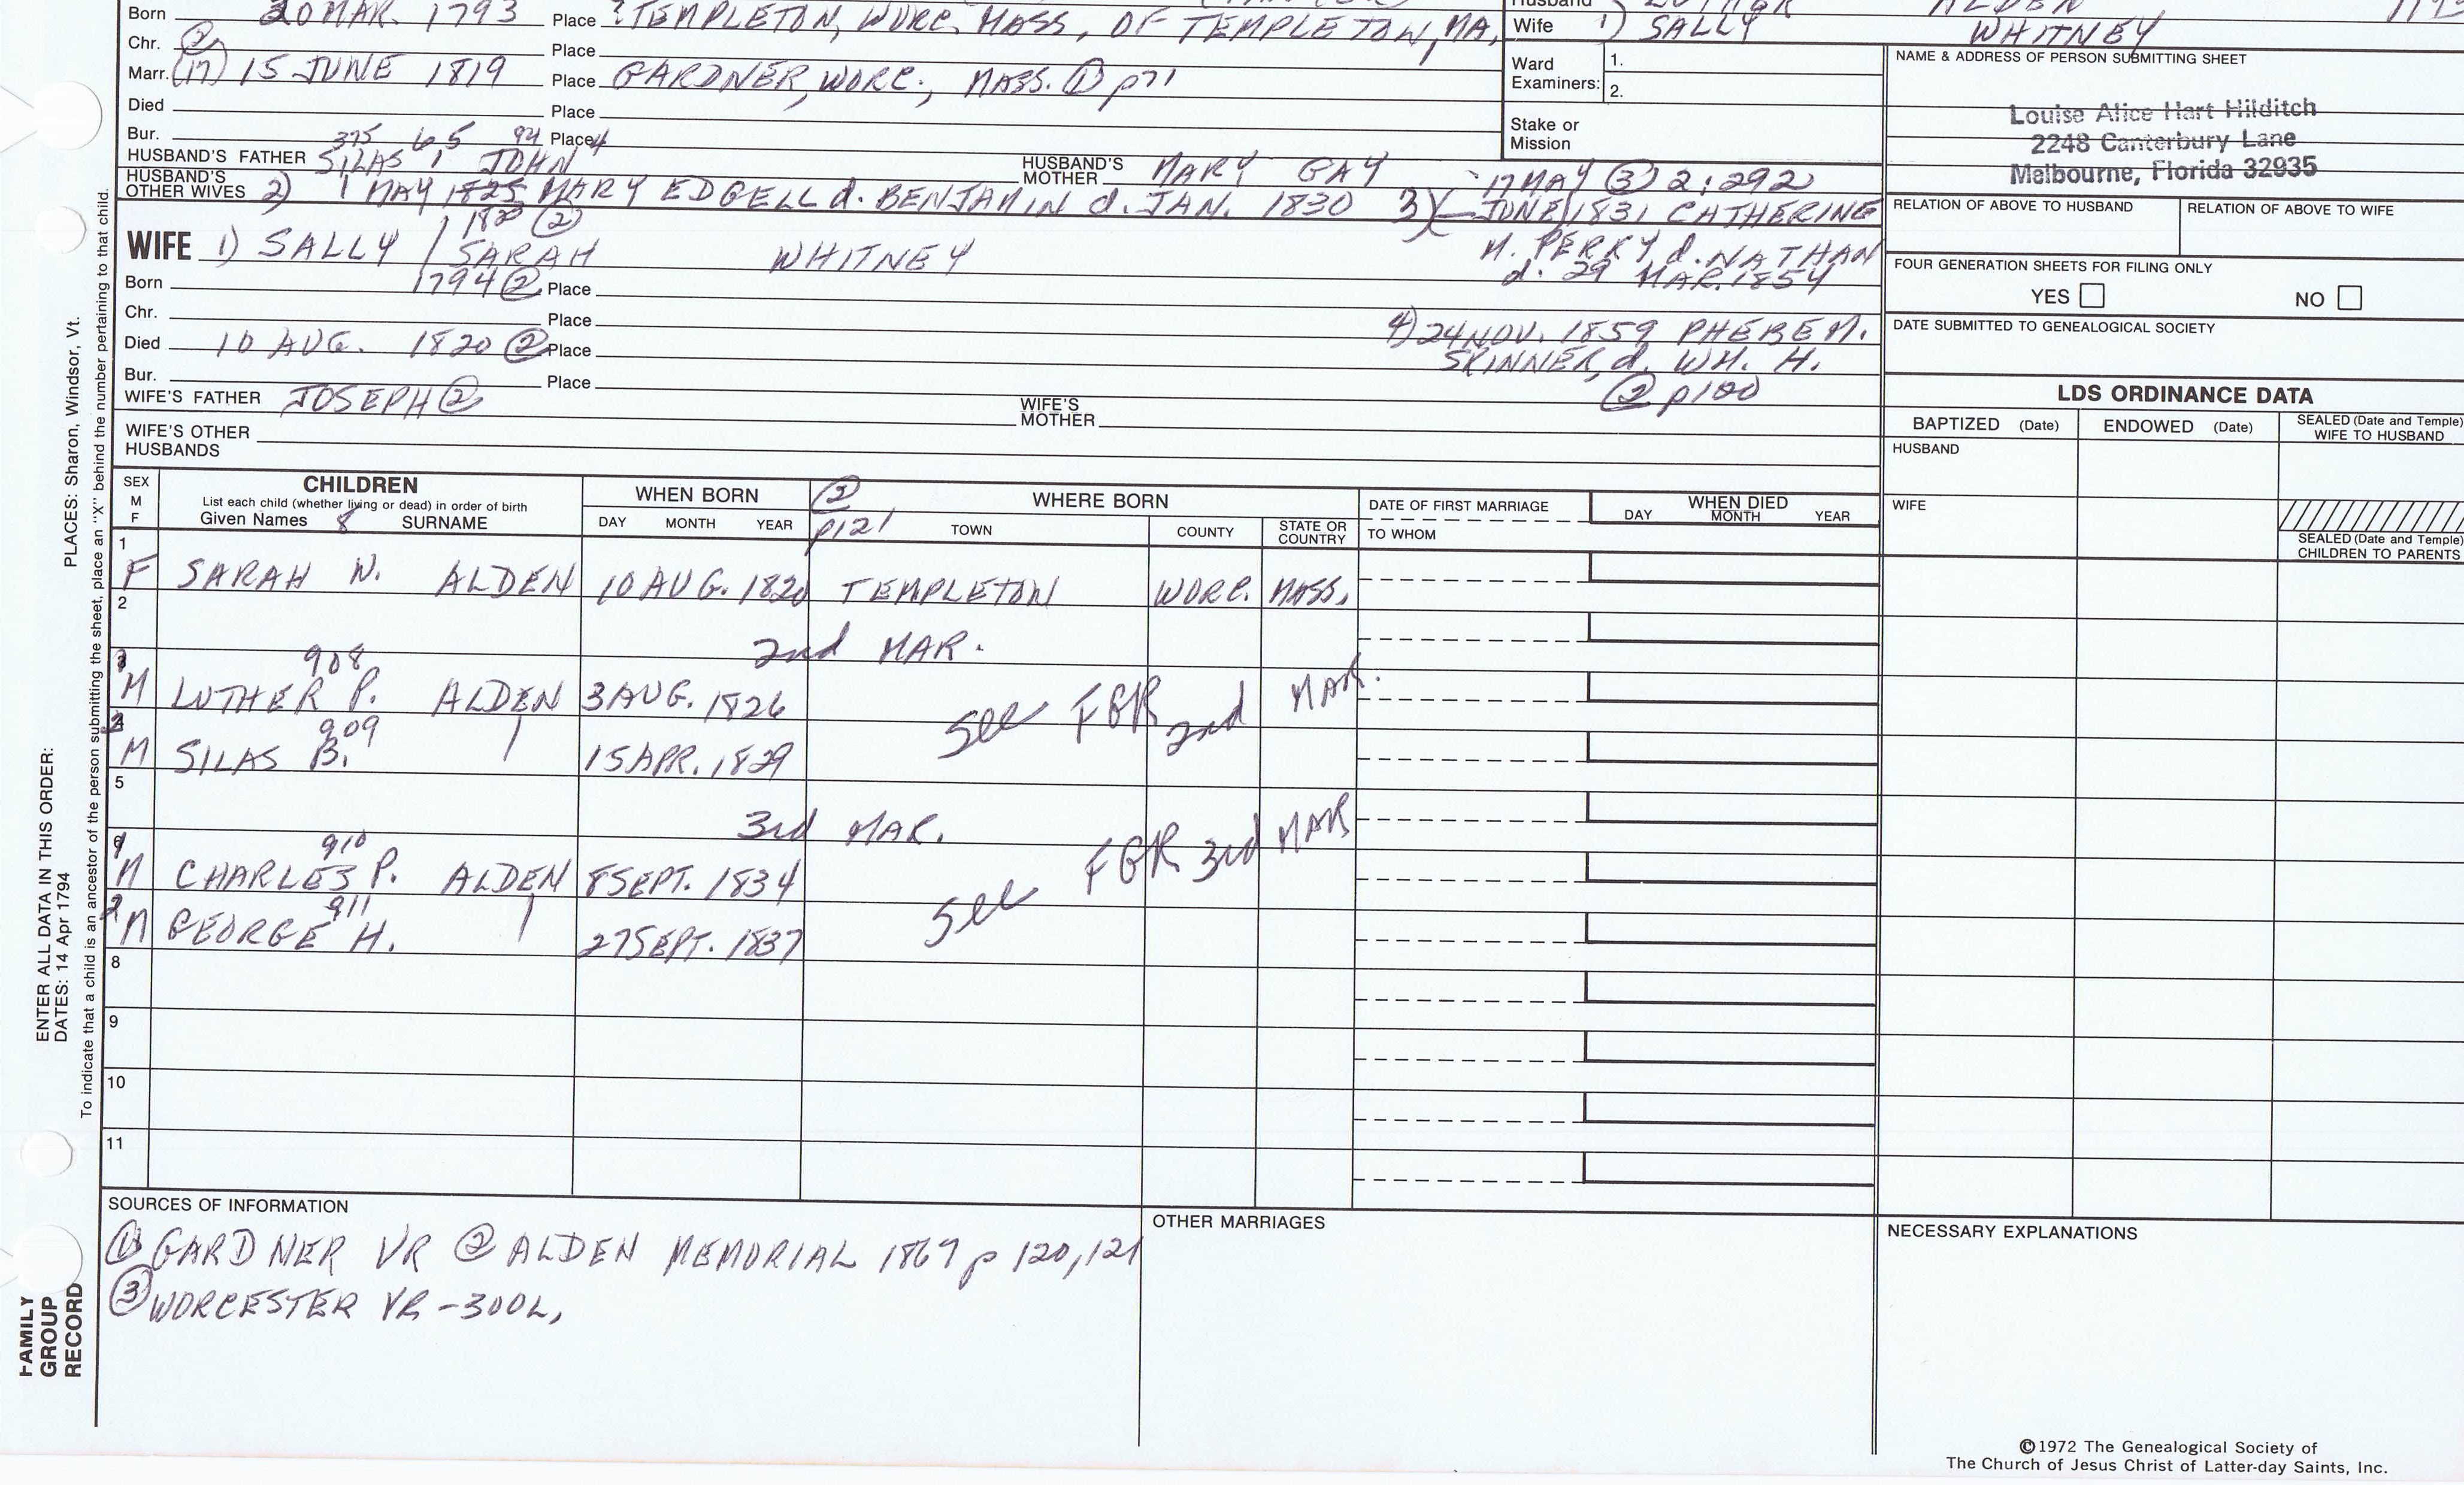 Born 20 MAR. 1793 Place ? TEMPLETON, WORC. MASS, OF TEMPLETON, MA,
Chr. ② Place
Marr. (17) 15 JUNE 1819 Place GARDNER, WORC., MASS. ① p71
Died Place
Bur. Place
375 6 5 94 4
HUSBAND'S FATHER SILAS, JOHN HUSBAND'S MOTHER MARY GAY
HUSBAND'S OTHER WIVES 2) 1 MAY 1825 MARY EDGELL d. BENJAMIN d. JAN. 1830 3) 17 MAY ③ 2:292
JUNE 1831 CATHERINE
M. PERRY d. NATHAN
d. 29 MAR. 1854
4) 24 NOV. 1859 PHEBE M.
SKINNER, d. WM. H.
② p120
WIFE 1) SALLY / SARAH WHITNEY
Born 1794 ② Place
Chr. Place
Died 10 AUG. 1820 ② Place
Bur. Place
WIFE'S FATHER JOSEPH ② WIFE'S MOTHER
WIFE'S OTHER HUSBANDS
Husband LUTHER ALDEN
Wife 1) SALLY WHITNEY
Ward Examiners: 1.
2.
Stake or Mission
NAME & ADDRESS OF PERSON SUBMITTING SHEET
Louise Alice Hart Hilditch
2248 Canterbury Lane
Melbourne, Florida 32935
RELATION OF ABOVE TO HUSBAND RELATION OF ABOVE TO WIFE
FOUR GENERATION SHEETS FOR FILING ONLY
YES NO
DATE SUBMITTED TO GENEALOGICAL SOCIETY
LDS ORDINANCE DATA
BAPTIZED (Date) ENDOWED (Date) SEALED (Date and Temple) WIFE TO HUSBAND
HUSBAND
WIFE
SEALED (Date and Temple) CHILDREN TO PARENTS
SEX M F
CHILDREN
List each child (whether living or dead) in order of birth
Given Names 8 SURNAME
WHEN BORN
DAY MONTH YEAR
② p121
WHERE BORN
TOWN COUNTY STATE OR COUNTRY
DATE OF FIRST MARRIAGE
TO WHOM
WHEN DIED
DAY MONTH YEAR
1 F SARAH W. ALDEN 10 AUG. 1820 TEMPLETON WORC. MASS.
2
2nd MAR.
908
M LUTHER P. ALDEN 3 AUG. 1826 See FGR 2nd MAR.
909
M SILAS B. 15 APR. 1829
5
3rd MAR.
910
M CHARLES P. ALDEN 8 SEPT. 1834 See FGR 3rd MAR
911
2 M GEORGE H. 27 SEPT. 1837
8
9
10
11
SOURCES OF INFORMATION
① GARDNER VR ② ALDEN MEMORIAL 1867 p 120, 121
③ WORCESTER VR -300L,
OTHER MARRIAGES
NECESSARY EXPLANATIONS
©1972 The Genealogical Society of
The Church of Jesus Christ of Latter-day Saints, Inc.
ENTER ALL DATA IN THIS ORDER:
DATES: 14 Apr 1794
PLACES: Sharon, Windsor, Vt.
To indicate that a child is an ancestor of the person submitting the sheet, place an "X" behind the number pertaining to that child.
FAMILY
GROUP
RECORD